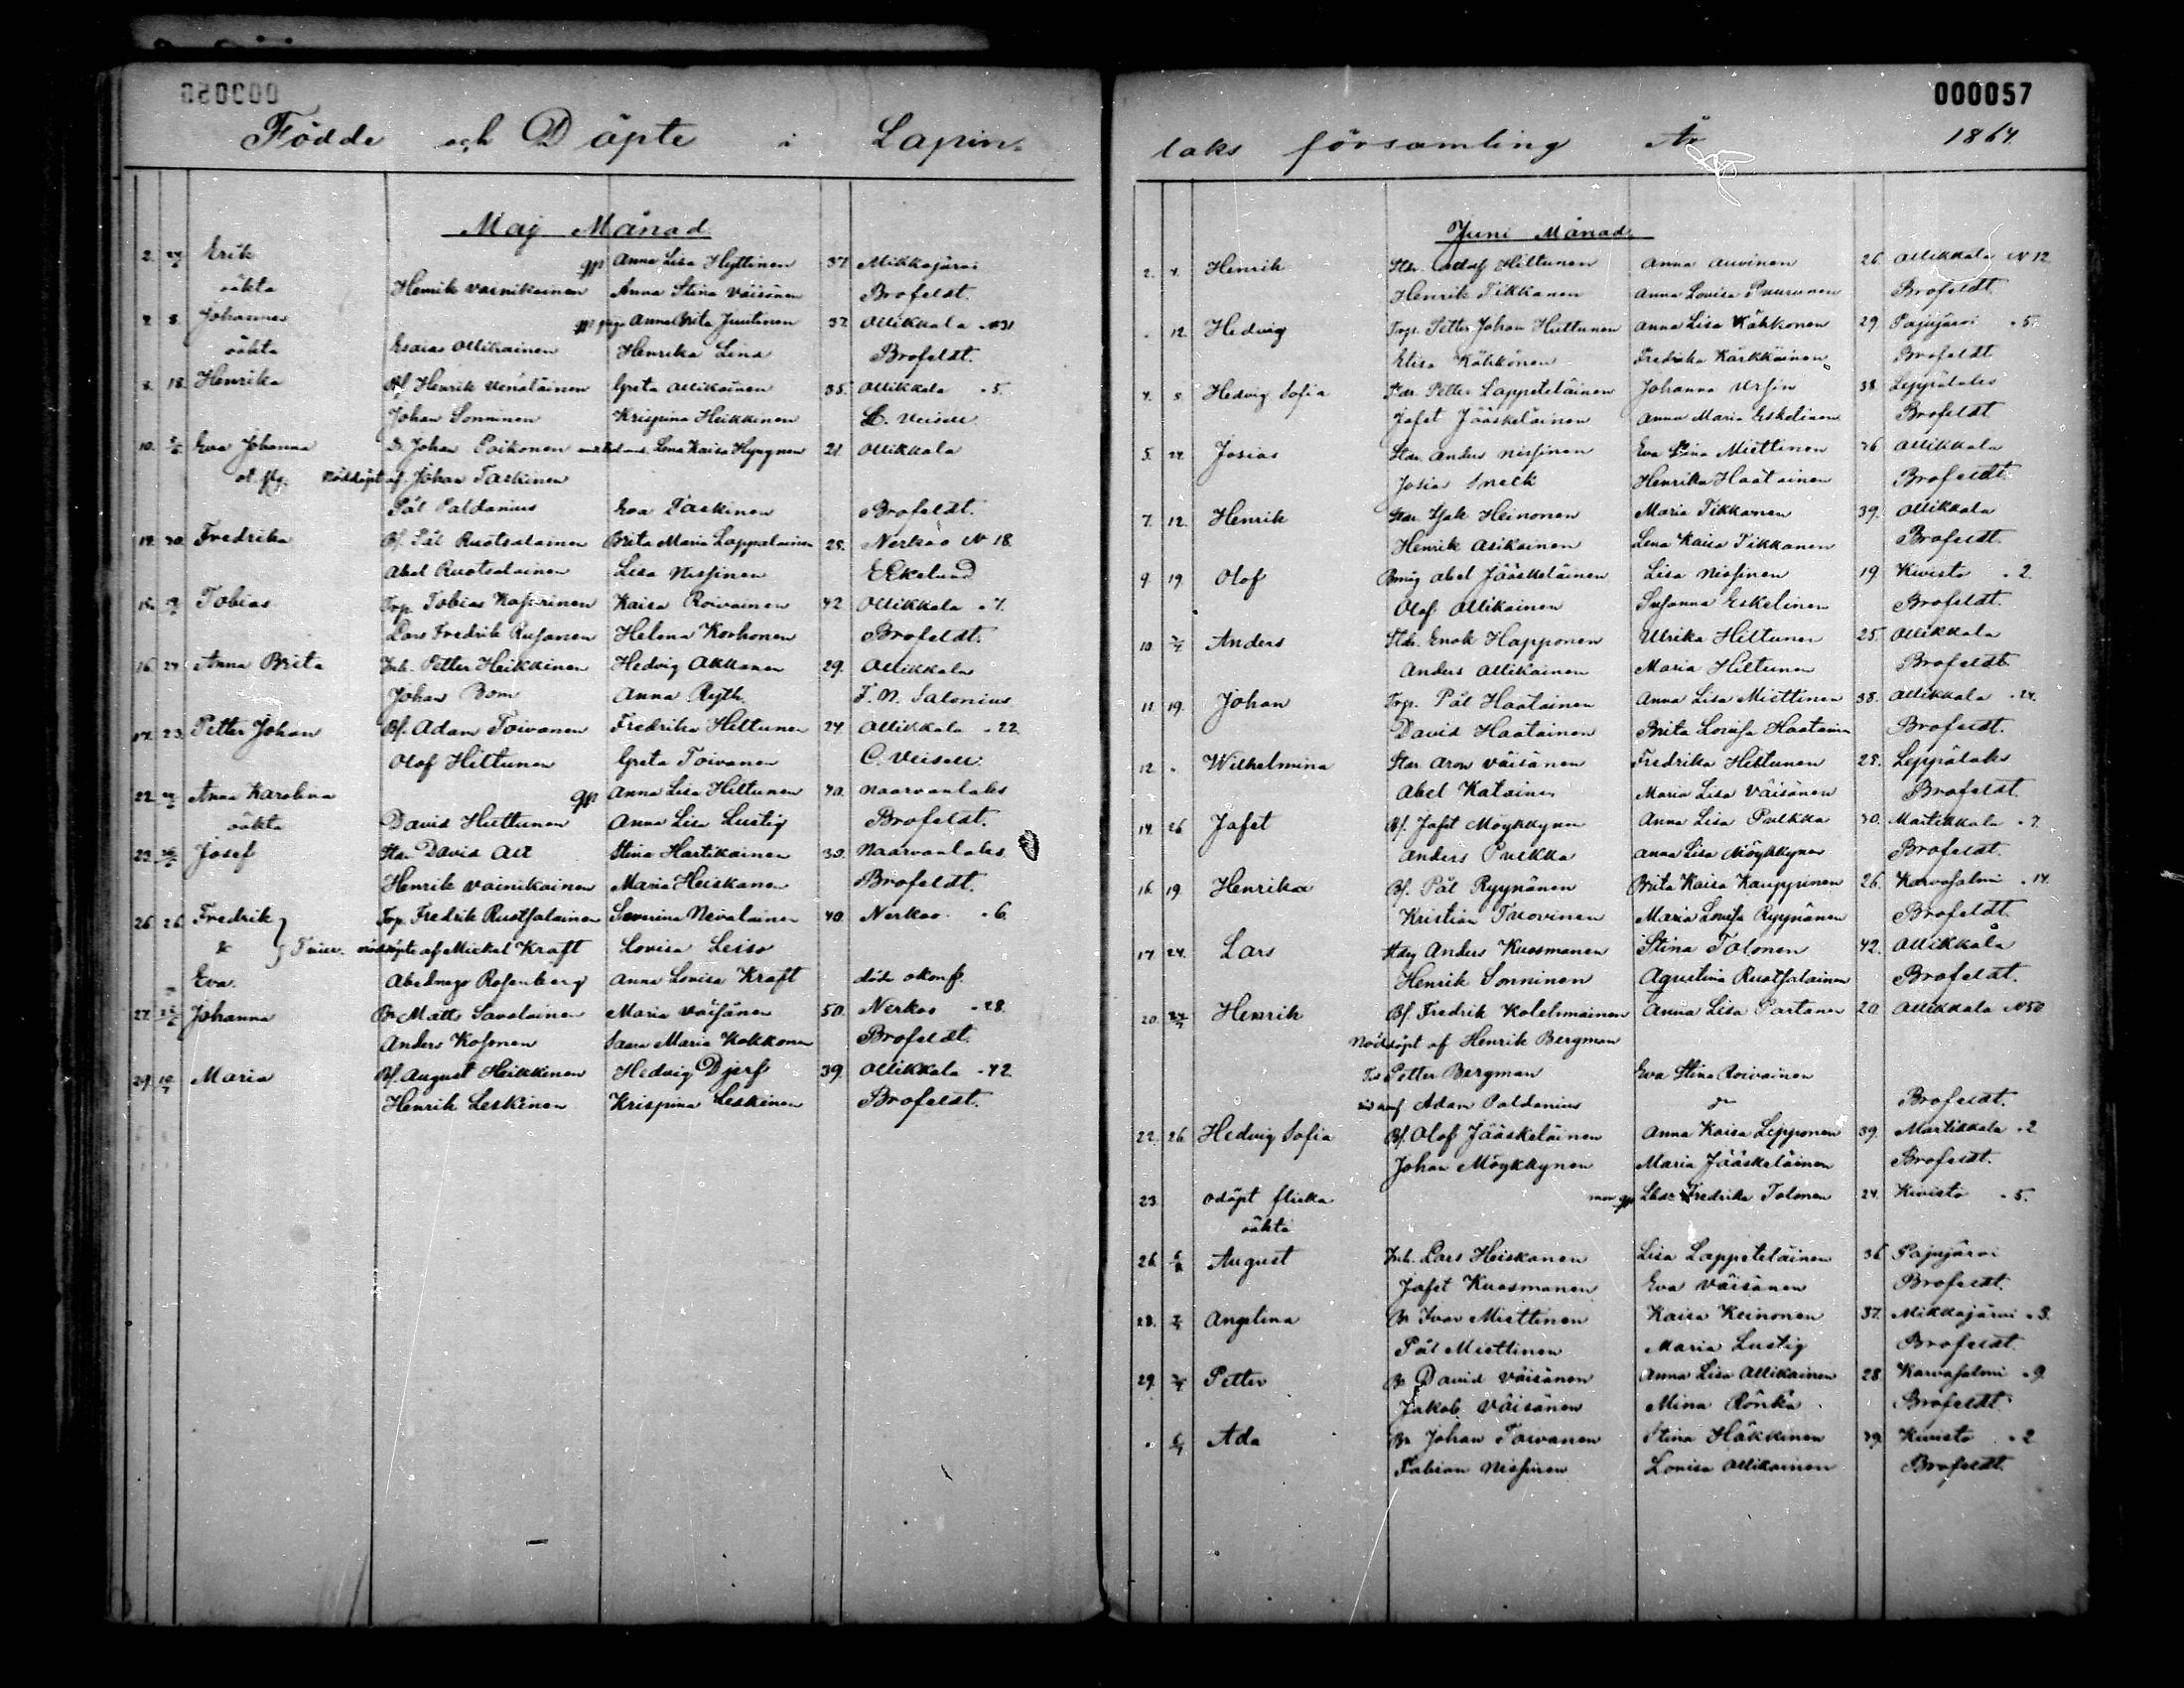 000057
Födde och Döpte i Lapin-
laks församling År 1864
Maj Månad
2. Erik gp Anna Lisa Hyttinen 37 Mikkajärvi
oäkta Henrik Vainikainen Anna Stina Väisänen Brofeldt.
8. Johannes Anna Brita Juutinen 37 Ollikkala
oäkta Esaias Ollikainen Henrika Lind Brofeldt.
8. 18. Henrika Bf. Henrik Venäläinen Greta Ollikainen 35. Ollikkala 5.
Johan Sonninen Krispina Heikkinen
10. Eva Johanna Johan Poikonen Lena Kaisa 21 Ollikkala
Nöddöpt af Johan Taskinen
Pål Paldanius Eva Taskinen Brofeldt.
Fredrika Bf. Pål Ruotsalainen Brita Maria Lappalainen 25. Nerkoo N 18.
Abel Ruotsalainen Lisa Nissinen E Ekelund
Tobias Trp Tobias Kaiserinen Kaisa Roivainen 42 Ollikkala
Lars Fredrik Rusanen Helena Korhonen Brofeldt.
16. 24 Anna Brita Inh. Petter Heikkinen Hedvig Akkanen 29. Ollikkala
Johan Bom Anna Ryth. F. N. Salonius
17. 23. Petter Johan Bf. Adam Toivanen Fredrika Hiltunen 24 Ollikkala 22
Olof Hiltunen Greta Toivanen
22. Anna Karolina gp Anna Lisa Hiltunen 40. Naarvanlaks
oäkta David Huttunen Anna Lisa Lustig Brofeldt.
23. Josef David Alt Stina Hartikainen 30. Naarvanlaks
Henrik Vainikainen Maria Heiskanen Brofeldt.
26. 26. Fredrik Trp. Fredrik Ruotsalainen Severina Nevalainen 40. Nerkoo 6.
& nöddöpte af Mickel Kraft Lovisa Leiso
Eva. Abednego Rosenberg Anna Lovisa Kraft
27. Johanna Matts Savolainen Maria Väisänen 50. Nerkoo 28.
Anders Kosonen Saara Maria Kokkonen Brofeldt.
29. Maria Bf. August Heikkinen Hedvig Djerf 39. Ollikkala 42.
Henrik Leskinen Krispina Leskinen Brofeldt.
Juni Månad.
2. Henrik Olof Hiltunen Anna Auvinen 26. Ollikkala N 12.
Henrik Tikkanen Anna Lovisa Puurunen Brofeldt.
12. Hedvig Trp. Petter Johan Huttunen Anna Lisa Kähkönen 29. Pajujärvi 5.
Elisa Kähkönen Fredrika Kärkkäinen Brofeldt
Hedvig Sofia Petter Lappeteläinen Johanna Ursin 38. Leppälaks
Jafet Jääskeläinen Anna Maria Eskelinen Brofeldt
5. Josias Anders Nissinen Eva Stina Miettinen 26 Ollikkala
Josia Snell Henrika Haatainen Brofeldt.
7. 12. Henrik Isak Heinonen Maria Tikkanen 39. Ollikkala
Henrik Asikainen Lena Kaisa Tikkanen Brofeldt.
9. 19. Olof Abel Jääskeläinen Lisa Nissinen 19. Kivisto 2.
Olof Ollikainen Susanna Eskelinen Brofeldt.
10. Anders Enok Happonen Ulrika Hiltunen 25. Ollikkala
Anders Ollikainen Maria Hiltunen Brofeldt.
11. 19. Johan Trp. Pål Haatainen Anna Lisa Miettinen 38. Ollikkala 24.
David Haatainen Brita Lovisa Haatainen Brofeldt.
12. Wilhelmina Aron Väisänen Fredrika Hiltunen 28. Leppälaks
Abel Katainen Maria Lisa Väisänen Brofeldt.
14. 26 Jafet Bf. Jafet Möykkynen Anna Lisa Pulkka 30. Martikkala 7.
Anders Pulkka Anna Lisa Möykkynen Brofeldt.
16. 19. Henrika Bf. Pål Ryynänen Brita Kaisa Kauppinen 26. Karvasalmi 14.
Kristian Tuovinen Maria Lovisa Ryynänen Brofeldt.
17. 24. Lars Anders Kuosmanen Stina Tolonen 42. Ollikkala
Henrik Sonninen Agustina Ruotsalainen Brofeldt.
20. Henrik Bf. Fredrik Kolehmainen Anna Lisa Partanen 20. Ollikkala N 50
Nöddöpt af Henrik Bergman
Petter Bergman Eva Stina Roivainen
Adam Paldanius Brofeldt.
22. 26. Hedvig Sofia Bf. Olof Jääskeläinen Anna Kaisa Lipponen 39. Martikkala 2
Johan Möykkynen Maria Jääskeläinen Brofeldt.
23. odöpt flicka gp Fredrika Tolonen 24. Kivisto 5.
oäkta
26. August Inh. Lars Heiskanen Lisa Lappeteläinen 36 Pajujärvi
Jafet Kuosmanen Eva Väisänen Brofeldt.
28. Angelina Ivar Miettinen Kaisa Keinonen 37. Mikkajärvi 3.
Pål Miettinen Maria Lustig Brofeldt.
29. Petter David Väisänen Anna Lisa Ollikainen 28. Karvasalmi 9.
Jakob Väisänen Mina Rönkä Brofeldt.
Ada Johan Toivanen Stina Häkkinen 39. Kivisto 2
Fabian Nissinen Lovisa Ollikainen Brofeldt.